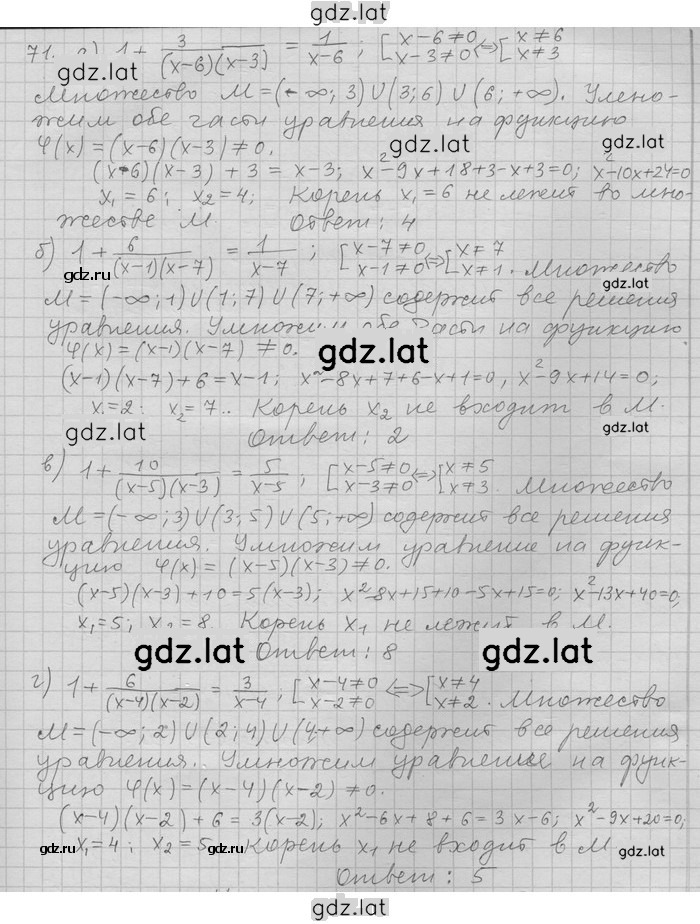 gdz.lat
71. а) 1 + 3/((x-6)(x-3)) = 1/(x-6); [x-6≠0 x-3≠0 ⇔ [x≠6 x≠3
gdz.lat
Множество M = (-∞; 3) U (3; 6) U (6; +∞). Умно-
жим обе части уравнения на функцию
gdz.lat
φ(x) = (x-6)(x-3) ≠ 0.
(x-6)(x-3) + 3 = x-3; x²-9x+18+3-x+3=0; x²-10x+24=0
gdz.lat
x₁ = 6; x₂ = 4; Корень x₁ = 6 не лежит во мно-
жестве M. Ответ: 4
gdz.lat
б) 1 + 6/((x-1)(x-7)) = 1/(x-7); [x-7≠0 x-1≠0 ⇔ [x≠7 x≠1. Множество
gdz.lat gdz.lat
M = (-∞; 1) U (1; 7) U (7; +∞) содержит все решения
уравнения. Умножим обе части на функцию
φ(x) = (x-1)(x-7) ≠ 0.
gdz.lat
(x-1)(x-7)+6 = x-1; x²-8x+7+6-x+1=0, x²-9x+14=0;
x₁=2; x₂=7.. Корень x₂ не входит в M.
gdz.lat gdz.lat
Ответ: 2
в) 1 + 10/((x-5)(x-3)) = 5/(x-5); [x-5≠0 x-3≠0 ⇔ [x≠5 x≠3. Множество
M = (-∞; 3) U (3; 5) U (5; +∞) содержит все решения
уравнения. Умножим уравнение на функ-
цию φ(x) = (x-5)(x-3) ≠ 0.
(x-5)(x-3)+10 = 5(x-3); x²-8x+15+10-5x+15=0; x²-13x+40=0;
x₁=5; x₂=8. Корень x₁ не лежит в M.
gdz.lat gdz.lat
Ответ: 8
г) 1 + 6/((x-4)(x-2)) = 3/(x-4); [x-4≠0 x-2≠0 ⇔ [x≠4 x≠2. Множество
M = (-∞; 2) U (2; 4) U (4; +∞) содержит все решения
уравнения. Умножим уравнение на функ-
цию φ(x) = (x-4)(x-2) ≠ 0.
(x-4)(x-2) + 6 = 3(x-2); x²-6x+8+6=3x-6; x²-9x+20=0;
x₁=4; x₂=5. Корень x₁ не входит в M
gdz.lat gdz.lat gdz.lat
Ответ: 5
gdz.lat